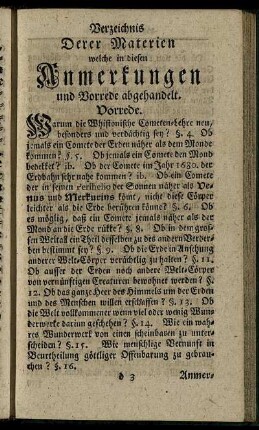 Verzeichnis
Derer Materien
welche in diesen
Anmerkungen
und Vorrede abgehandelt.
Vorrede.
Warum die Whistonische Cometen-Lehre neu,
besonders und verdächtig sey? §. 4. Ob
jemals ein Comete der Erden näher als dem Monde
kommen? §. 5. Ob jemals ein Comete den Mond
bedecket? ib. Ob der Comete im Jahr 1680. der
Erdbahn sehr nahe kommen? ib. Ob ein Comete
der in seinem Perihelio der Sonnen näher als Ve-
nus und Mercurius könt, nicht diese Cörper
leichter als die Erde berühren könne? §. 6. Ob
es möglig, daß ein Comete jemals näher als der
Mond an die Erde rükke? §. 8. Ob in dem gros-
sen Weltall ein Theil desselben zu des andern Verder-
ben bestimt sey? §. 9. Ob die Erde in Ansehung
anderer Welt-Cörper verächtlig zu halten? §. 11.
Ob ausser der Erden noch andere Welt-Cörper
von vernünftigen Creaturen bewohnet werden? §.
12. Ob das ganze Heer des Himmels um der Erden
und des Menschen willen erschaffen? §. 13. Ob
die Welt vollkommener wenn viel oder wenig Wun-
derwerke darein geschehen? §. 14. Wie ein wah-
res Wunderwerk von einen scheinbaren zu unter-
scheiden? §. 15. Wie menschlige Vernunft in
Beurtheilung götliger Offenbarung zu gebrau-
chen? §. 16.
b 3 Anmer-